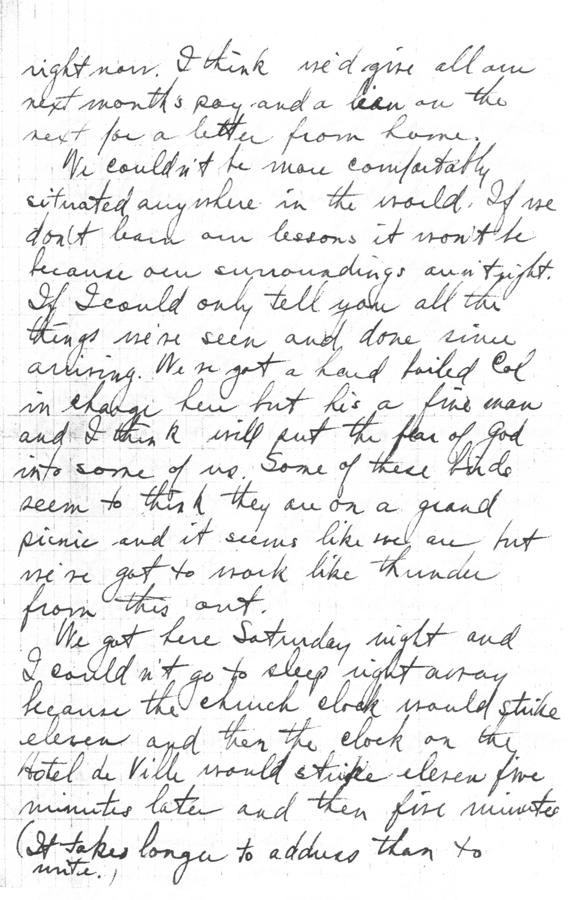 right now. I think we'd give all our
next month's pay and a lien on the
next for a letter from home.
We couldn't be more comfortably
situated anywhere in the world. If we
don't learn our lessons it won't be
because our surroundings aren't right.
If I could only tell you all the
things we've seen and done since
arriving. We've got a hard boiled Col
in charge here but his a fine man
and I think will put the fear of God
into some of us. Some of these birds
seem to think they are on a grand
picnic and it seems like we are but
we've got to work like thunder
from this out.
We got here Saturday night and
I couldn't go to sleep right away
because the church clock would strike
eleven and then the clock on the
Hotel de Ville would strike eleven five
minutes later and then five minutes
(It takes longer to address than to
write.)